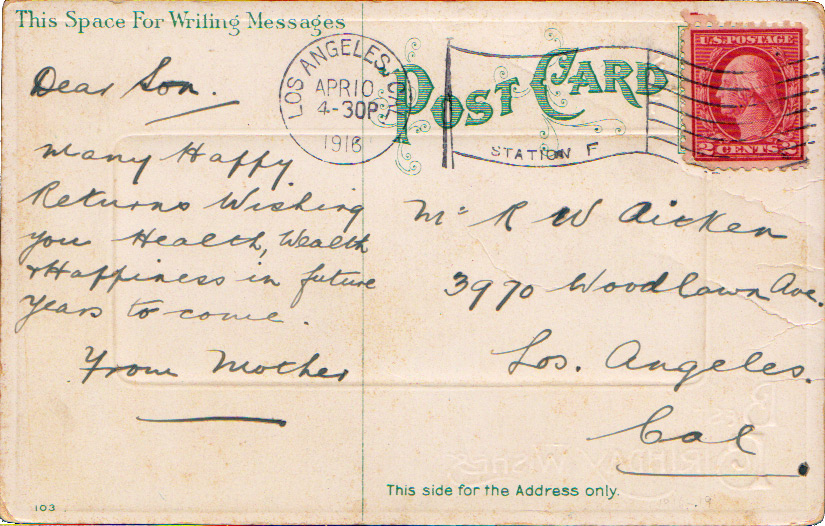 This Space For Writing Messages
Dear Son.
Many Happy
Returns Wishing
you Health, Wealth
& Happiness in future
years to come.
From Mother
103
LOS ANGELES, CAL
APR 10
4-30P
1916
STATION F
POST CARD
U.S. POSTAGE
2 CENTS 2
Mr R W Aitken
3970 Woodlawn Ave.
Los. Angeles.
Cal
BEST
BIRTHDAY WISHES
This side for the Address only.